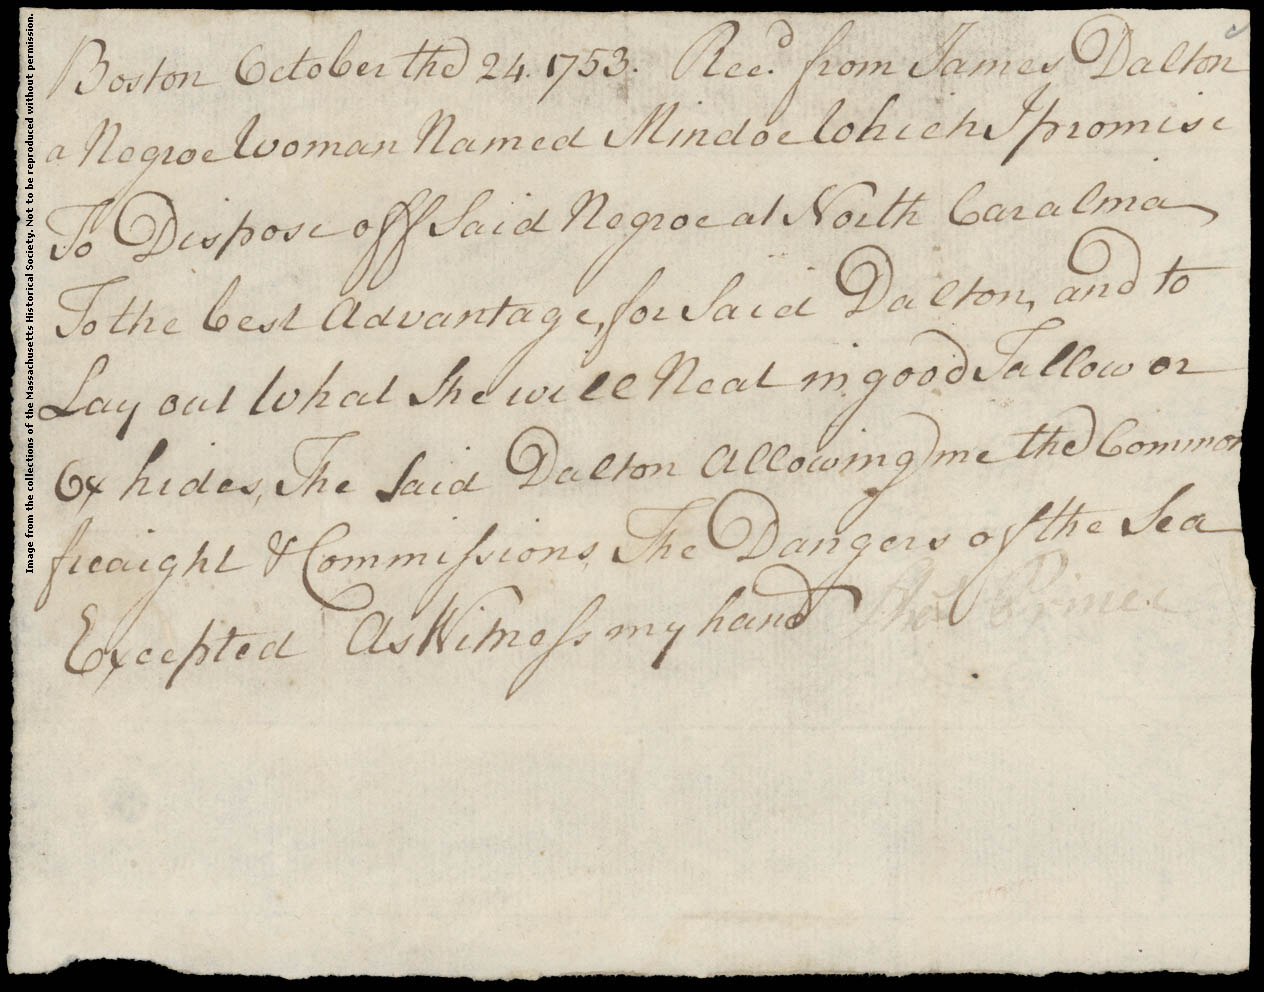 Boston October the 24. 1753. Recd. from James Dalton
a Negroe Woman Named Mindoe Which I promise
To Dispose off Said Negroe at North Caralina
To the best Advantage, for Said Dalton, and to
Lay out What She will Neat in good Tallow or
Ox hides, The Said Dalton Allowing me the Common
freaight & Commissions, The Dangers of the Sea
Excepted As Witness my hand Thos Prince
Image from the collections of the Massachusetts Historical Society. Not to be reproduced without permission.